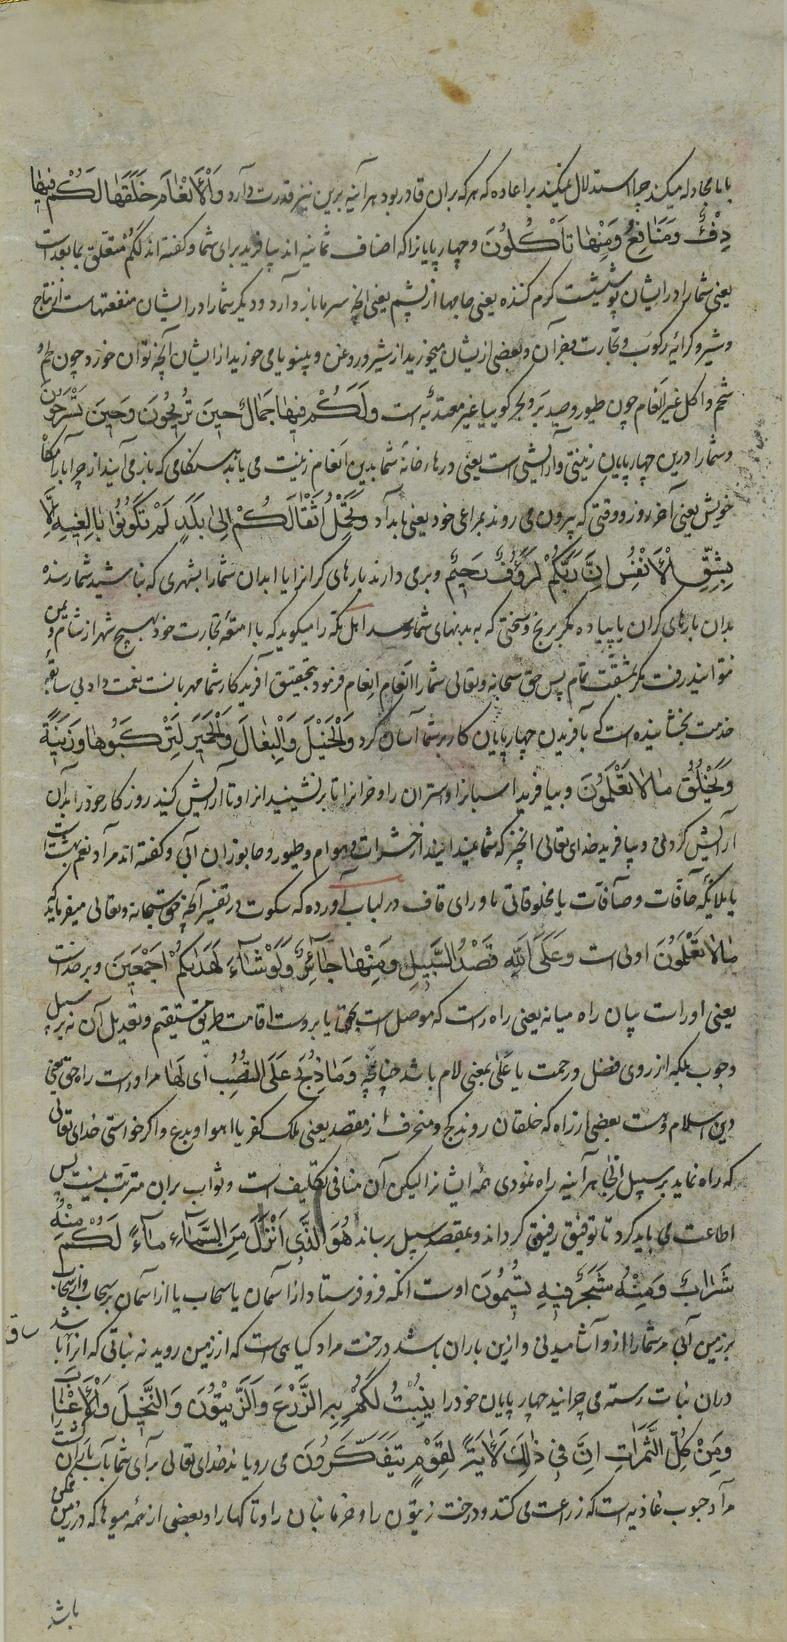 با ما مجادله میکند چرا استدلال نمیکند بر اعاده که هر که بر آن قادر بود هر آینه برین نیز قدرت دارد وَالْأَنْعَامَ خَلَقَهَا لَكُمْ فِيهَا
دِفْءٌ وَمَنَافِعُ وَمِنْهَا تَأْكُلُونَ و چهارپایانرا که اصناف ثمانیه اند بیافرید برای شما و گفته اند لکم متعلق بما بعد است
یعنی شما را در ایشان پوششیست گرم کننده یعنی جامها از پشم یعنی آنچه سرما باز دارد و دیگر شما را در ایشان منفعتهاست از نتاج
و شیر و کرایه رکوب و تجارت و جز آن و بعضی از ایشان میخورید از شیر و روغن و پنیر یا می خورید از ایشان آنچه توان خورد چون لحم و
شحم و اکل غیر انعام چون طیور و صید بر و بحر گوییا غیر معتد به است وَلَكُمْ فِيهَا جَمَالٌ حِينَ تُرِيحُونَ وَحِينَ تَسْرَحُونَ
و شما را درین چهارپایان زینتی و آرایشی است یعنی در هار خانه شما بدین انعام زینت می یابد هنگامی که باز می آیند از چرا بآرامگاه
خویش یعنی آخر روز و وقتی که بیرون می روند بمراعی خود یعنی بامداد وَتَحْمِلُ أَثْقَالَكُمْ إِلَى بَلَدٍ لَمْ تَكُونُوا بَالِغِيهِ إِلَّا
بِشِقِّ الْأَنْفُسِ إِنَّ رَبَّكُمْ لَرَؤُفٌ رَحِيمٌ و برمی دارند بارهای گرانرا یا ابدان شما را بشهری که نباشید شما رسنده
بدان بارهای گران یا پیاده مگر برنج و سختی که به بدنهای شما رسد اهل مکه را میگوید که با امتعه تجارت خود بهیچ شهر از شام و یمن
نتوانید رفت مگر بمشقت تمام پس حق سبحانه و تعالی شما را انعام انعام فرمود بتحقیق آفریدگار شما مهربانست نعمت داد بی سابقه
خدمت بخشاینده است که بآفریدن چهارپایان کار بر شما آسان کرد وَالْخَيْلَ وَالْبِغَالَ وَالْحَمِيرَ لِتَرْكَبُوهَا وَزِينَةً
وَيَخْلُقُ مَا لَا تَعْلَمُونَ و بیافرید اسبانرا و استران را و خرانرا تا برنشینید انرا و تا آرایش کنید روز کار خود را بدان
آرایش کردنی و بیافرید خدای تعالی آنچیز که شما نمیدانید از حشرات و هوام و طیور و جانوران آبی و گفته اند مراد نعم بهشت است
یا ملائکه حافات و صافات یا مخلوقاتی ماورای قاف در لباب آورده که سکوت در تفسیر آنچه حق سبحانه و تعالی میفرماید که
مَا لَا تَعْلَمُونَ اولی است وَعَلَى اللَّهِ قَصْدُ السَّبِيلِ وَمِنْهَا جَائِرٌ وَلَوْ شَاءَ لَهَدَاكُمْ أَجْمَعِينَ و بر خداست
یعنی اوراست بیان راه میانه یعنی راه راست که موصل است بحق یا بروست اقامت طریق مستقیم و تعدیل آن نه بر سبیل
وجوب بلکه از روی فضل و رحمت یا علی بمعنی لام باشد چنانچه وَمَا ذُبِحَ عَلَى النُّصُبِ ای لها مراوراست راه حق یعنی
دین اسلام وست بعضی از راه که خلقان روند کج و منحرف از مقصد یعنی ملک کفر یا اهوا و بدع و اگر خواستی خدای تعالی
که راه نماید بر سبیل الجا هر آینه راه نمودی همه ایشانرا لیکن آن منافی تکلیف است و ثواب بران مترتب نیست پس
اطاعت می باید کرد تا توفیق رفیق گرداند و بمقصد سبیل برساند هُوَ الَّذِي أَنْزَلَ مِنَ السَّمَاءِ مَاءً لَكُمْ مِنْهُ
شَرَابٌ وَمِنْهُ شَجَرٌ فِيهِ تُسِيمُونَ اوست انکه فرو فرستاد از آسمان یا سحاب یا از آسمان بر سحاب و از سحاب
بر زمین آبی مر شما را ازو آشامیدنی و ازین باران باشد درخت مراد گیاهی است که از زمین روید نه نباتی که انرا ساق باشد
دران نبات رسته می چرانید چهارپایان خود را يُنْبِتُ لَكُمْ بِهِ الزَّرْعَ وَالزَّيْتُونَ وَالنَّخِيلَ وَالْأَعْنَابَ
وَمِنْ كُلِّ الثَّمَرَاتِ إِنَّ فِي ذَلِكَ لَآيَةً لِقَوْمٍ يَتَفَكَّرُونَ می رویاند خدای تعالی برای شما بآب باران کشت
مراد حبوب غاذیه است که زراعت می کنند و درخت زیتون را و خرما بنان را و تاکها را و بعضی از همه میوها که در زمین ممکن
باشد